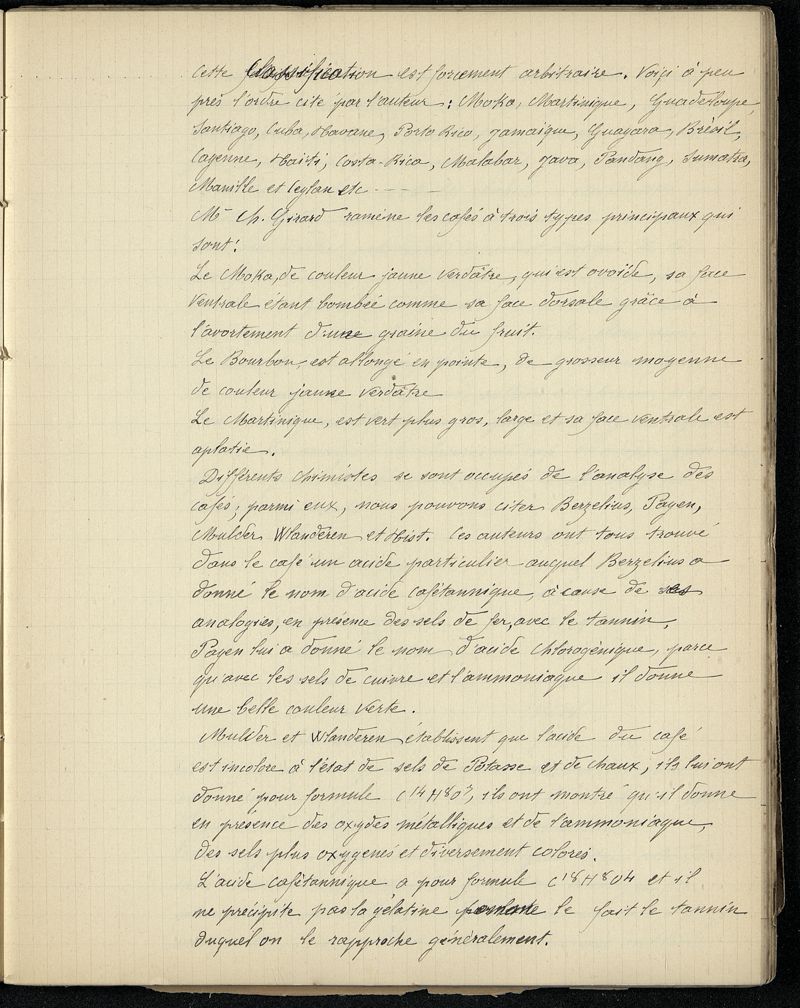 cette classification est forcement arbitraire. Voiçi à peu
près l'ordre cité par l'auteur : Moka, Martinique, Guadeloupe,
Santiago, Cuba, Havane, Porto Rico, Jamaïque, Guayara, Brésil,
Cayenne, Haïti, Costa-Rica, Malabar, Java, Pandang, Sumatra,
Manille et Ceylan etc - - - -
Mr Ch. Girard ramène les cafés à trois types principaux qui
sont :
Le Moka, de couleur jaune verdâtre, qui est ovoïde, sa face
ventrale étant bombée comme sa face dorsale grâce à
l'avortement d'une graine du fruit.
Le Bourbon, est allongé en pointe, de grosseur moyenne
de couleur jaune verdâtre
Le Martinique, est vert plus gros, large et sa face ventrale est
aplatie.
Différents chimistes se sont occupés de l'analyse des
cafés; parmi eux, nous pouvons citer Berzelius, Payen,
Mulder Wlanderen et Hist. Ces auteurs ont tous trouvé
dans le café un acide particulier auquel Berzelius a
donné le nom d'acide cafétannique, à cause de ses
analogies, en présence des sels de fer, avec le tannin,
Payen lui a donné le nom d'acide Chlorogénique, parce
qu'avec les sels de cuivre et l'ammoniaque il donne
une belle couleur verte.
Mulder et Wlanderen établissent que l'acide du café
est incolore à l'état de sels de Potasse et de chaux, ils lui ont
donné pour formule C14H8O7, ils ont montré qu'il donne
en présence des oxydes métalliques et de l'ammoniaque,
des sels plus oxygenés et diversement colorés.
L'acide cafétannique a pour formule C18H8O4 et il
ne précipite pas la gélatine comme le fait le tannin
duquel on le rapproche généralement.